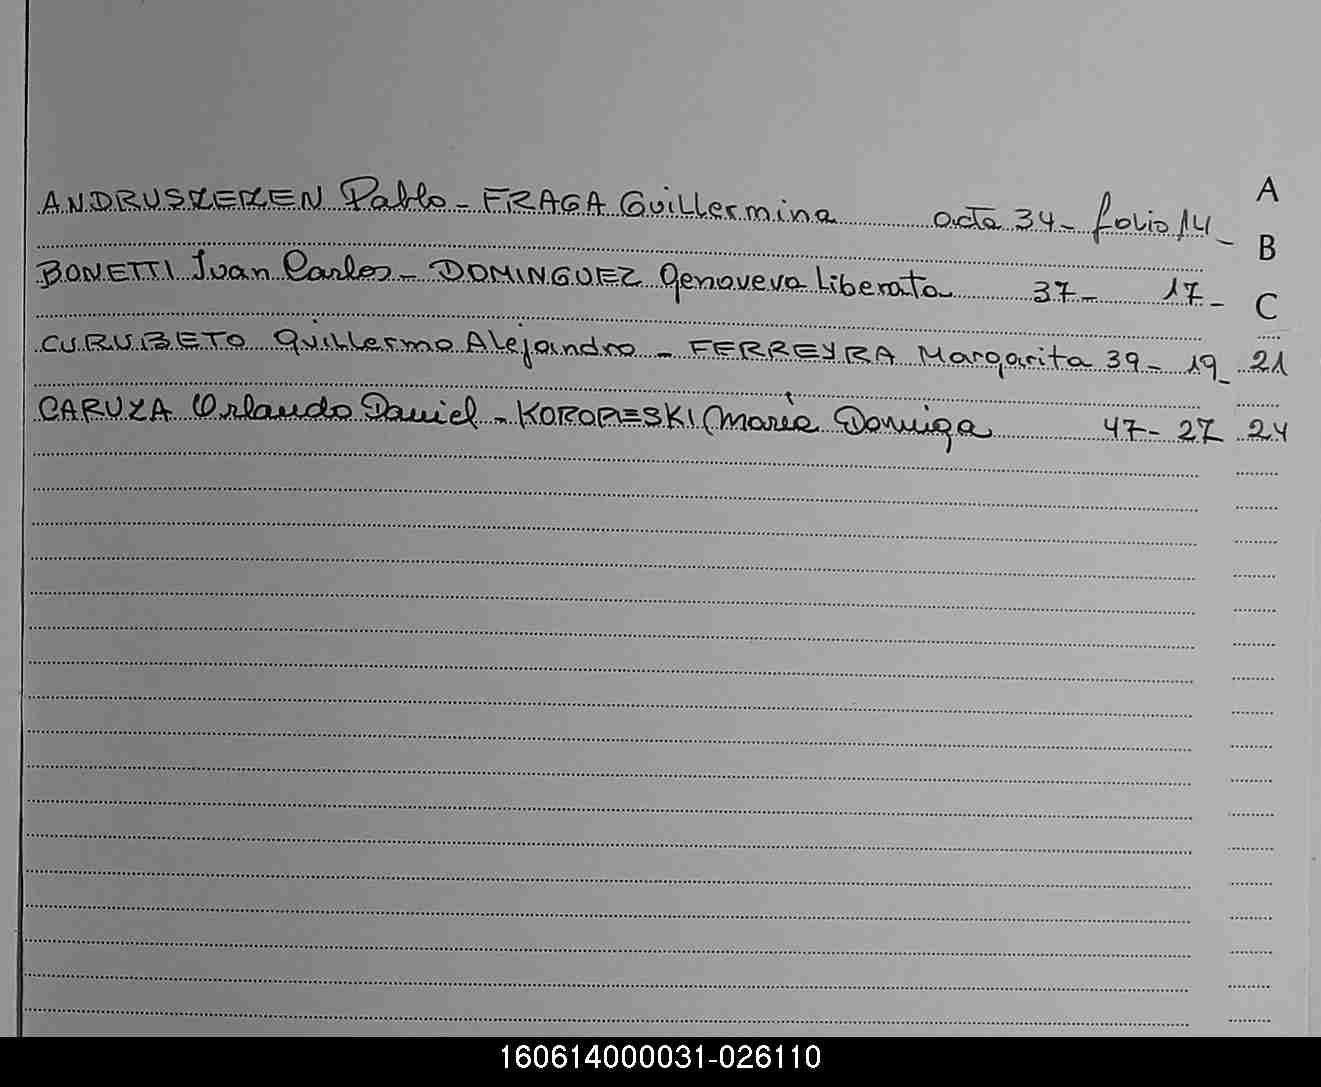 A
ANDRUSZEZEN Pablo - FRAGA Guillermina acta 34 - folio 14 -
B
BONETTI Juan Carlos - DOMINGUEZ Genoveva Liberata 37 - 17 -
C
CURUBETO Guillermo Alejandro - FERREYRA Margarita 39 - 19 - 21
CARUZA Orlando Daniel - María 47 - 27 24
160614000031-026110